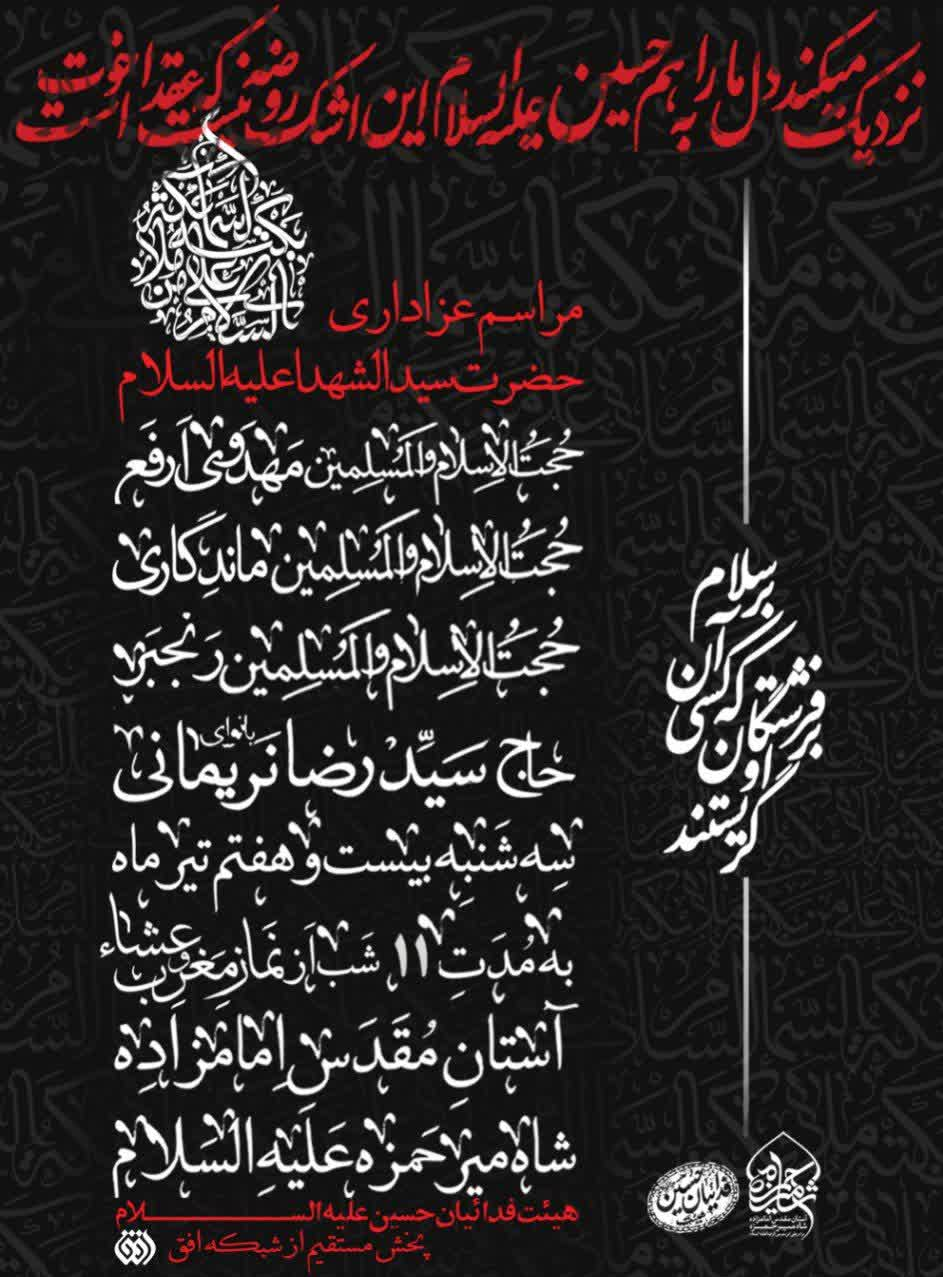 نزدیک میکند دل ما را به هم حسین علیه السلام این اشک روضه نیست که عقد اخوت است
السلام علی من بکته ملائکة السماء
مراسم عزاداری
حضرت سیدالشهدا علیه السلام
حُجَتُ الاِسلام وَالمُسلِمین مَهدَوی اَرفَع
حُجَتُ الاِسلام وَالمُسلِمین ماندِگاری
حُجَتُ الاِسلام وَالمُسلِمین رَنجبَر
بانوای
حاج سَیِّد رضا نَریمانی
سِه شَنبِه بیست و هفتم تیر ماه
به مُدَتِ ۱۱ شَب اَز نَماز مَغرِب و عشاء
آستانِ مُقَدَس اِمامزاده
شاه میر حَمزه عَلَیهِ السَلام
هیئت فدائیان حسین علیه السلام
پخش مستقیم از شبکه افق
افق
سلام بر
آن کسی که
فرشتگان
بر او
گریستند
فدائیان حسین
آستان مقدس امامزاده
شاه میر حمزه